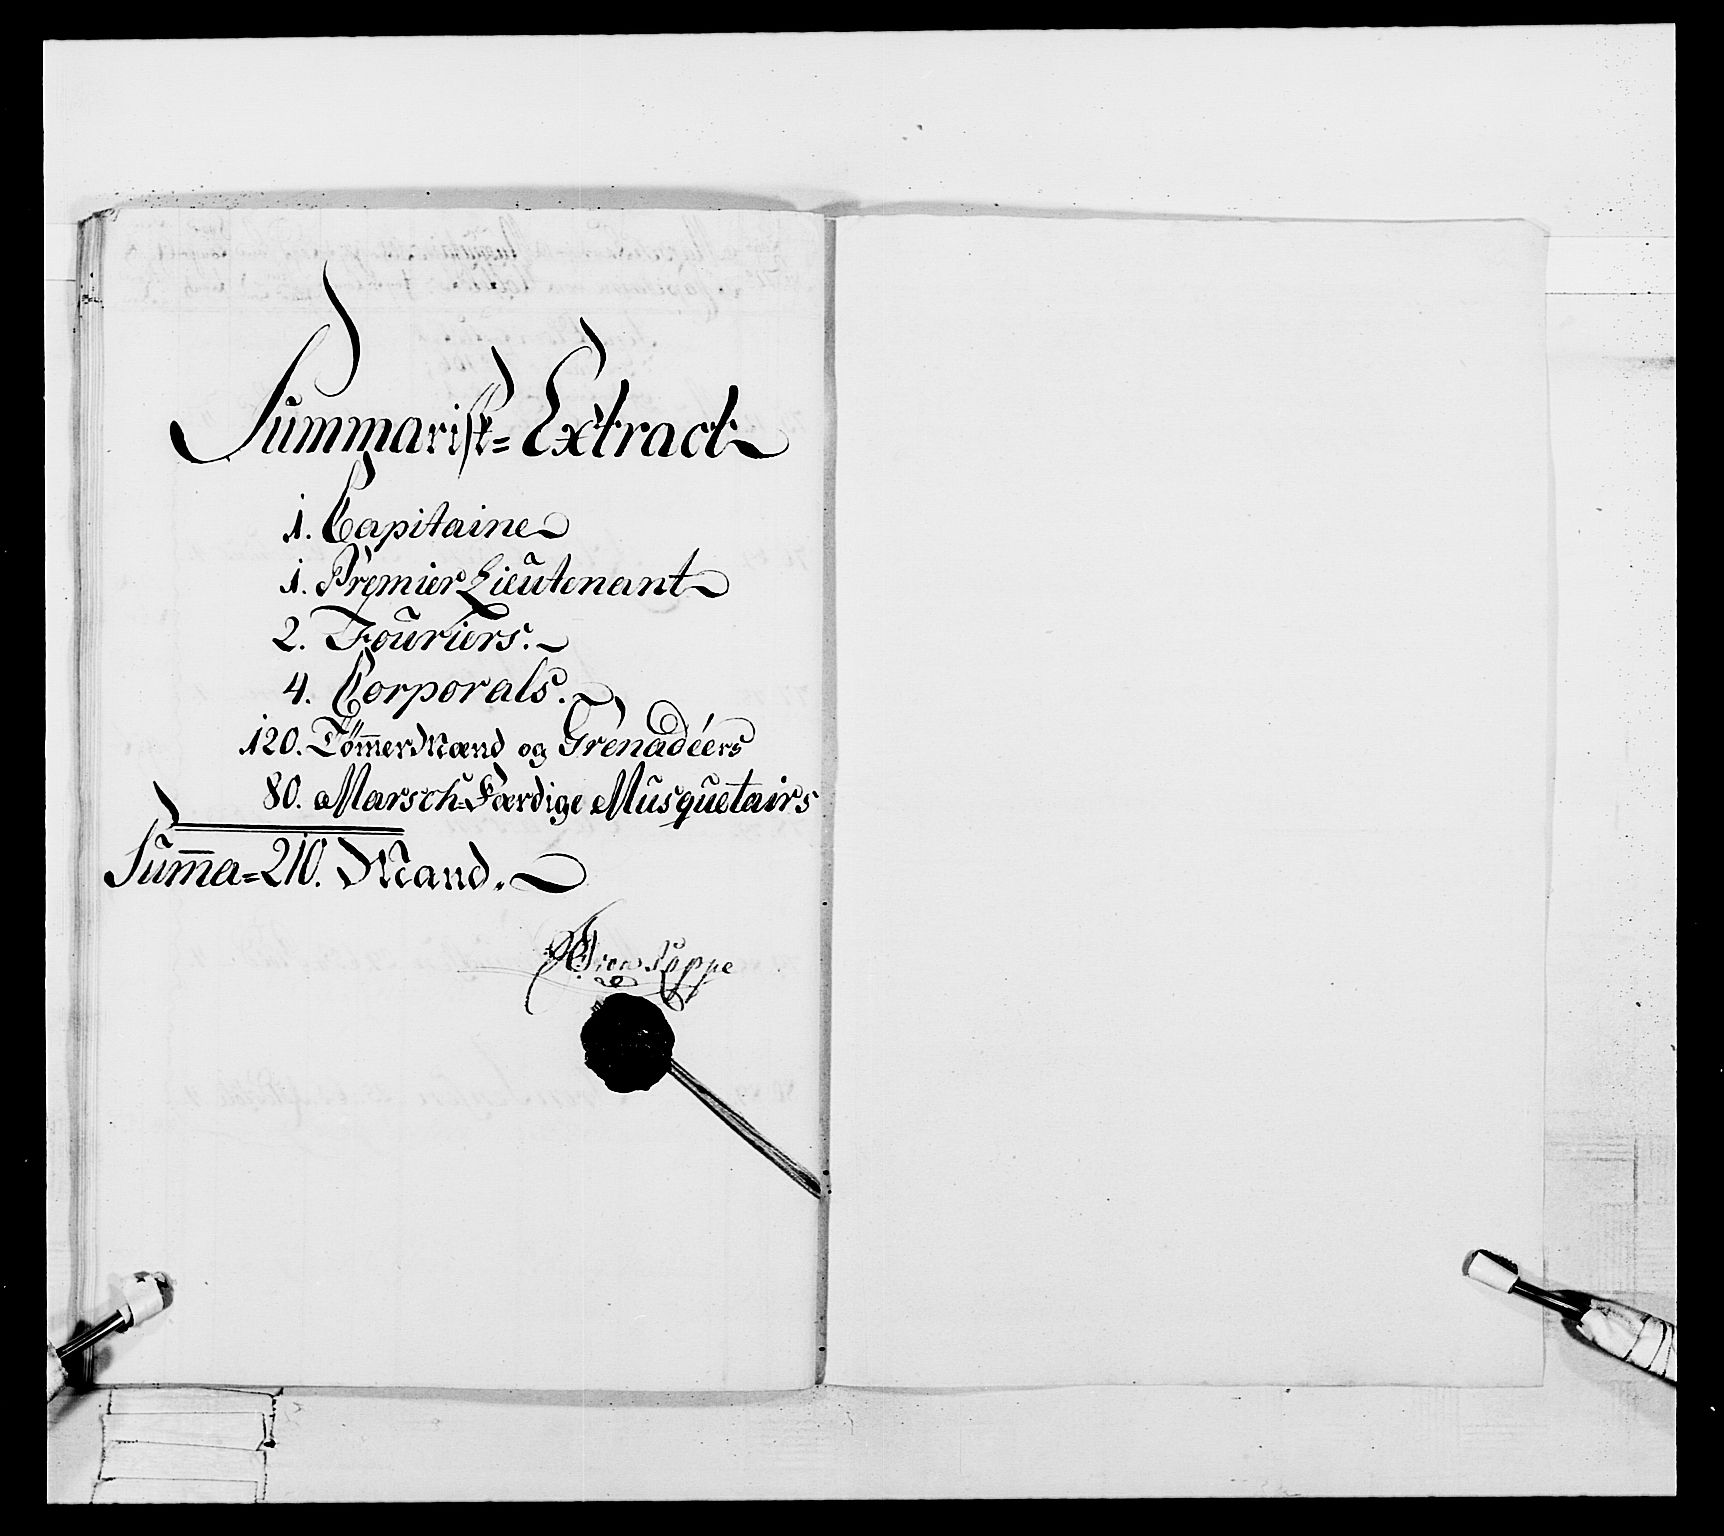 Summarisk= Extract
1. Capitaine
1. Premier Lieutenant
2. Fouriers.
4. Corporals.
120. Tøm̅erMænd og Grenadéers
80. Marsch=Færdige Musquetairs
Sum̅a=210. Mand.